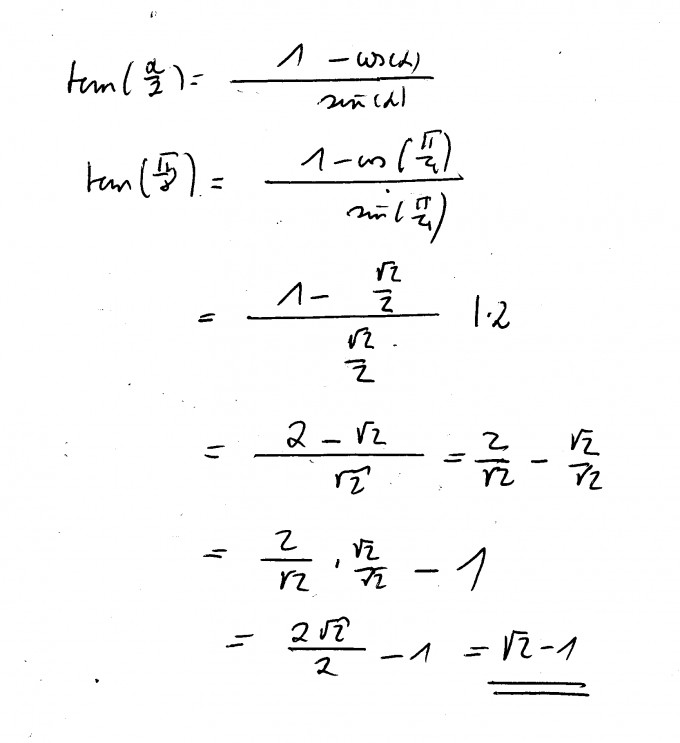 tan(α/2) = (1 - cos(α)) / sin(α)
tan(π/8) = (1 - cos(π/4)) / sin(π/4)
= (1 - √2/2) / (√2/2) |·2
= (2 - √2) / √2 = 2/√2 - √2/√2
= 2/√2 · √2/√2 - 1
= 2√2/2 - 1 = √2 - 1